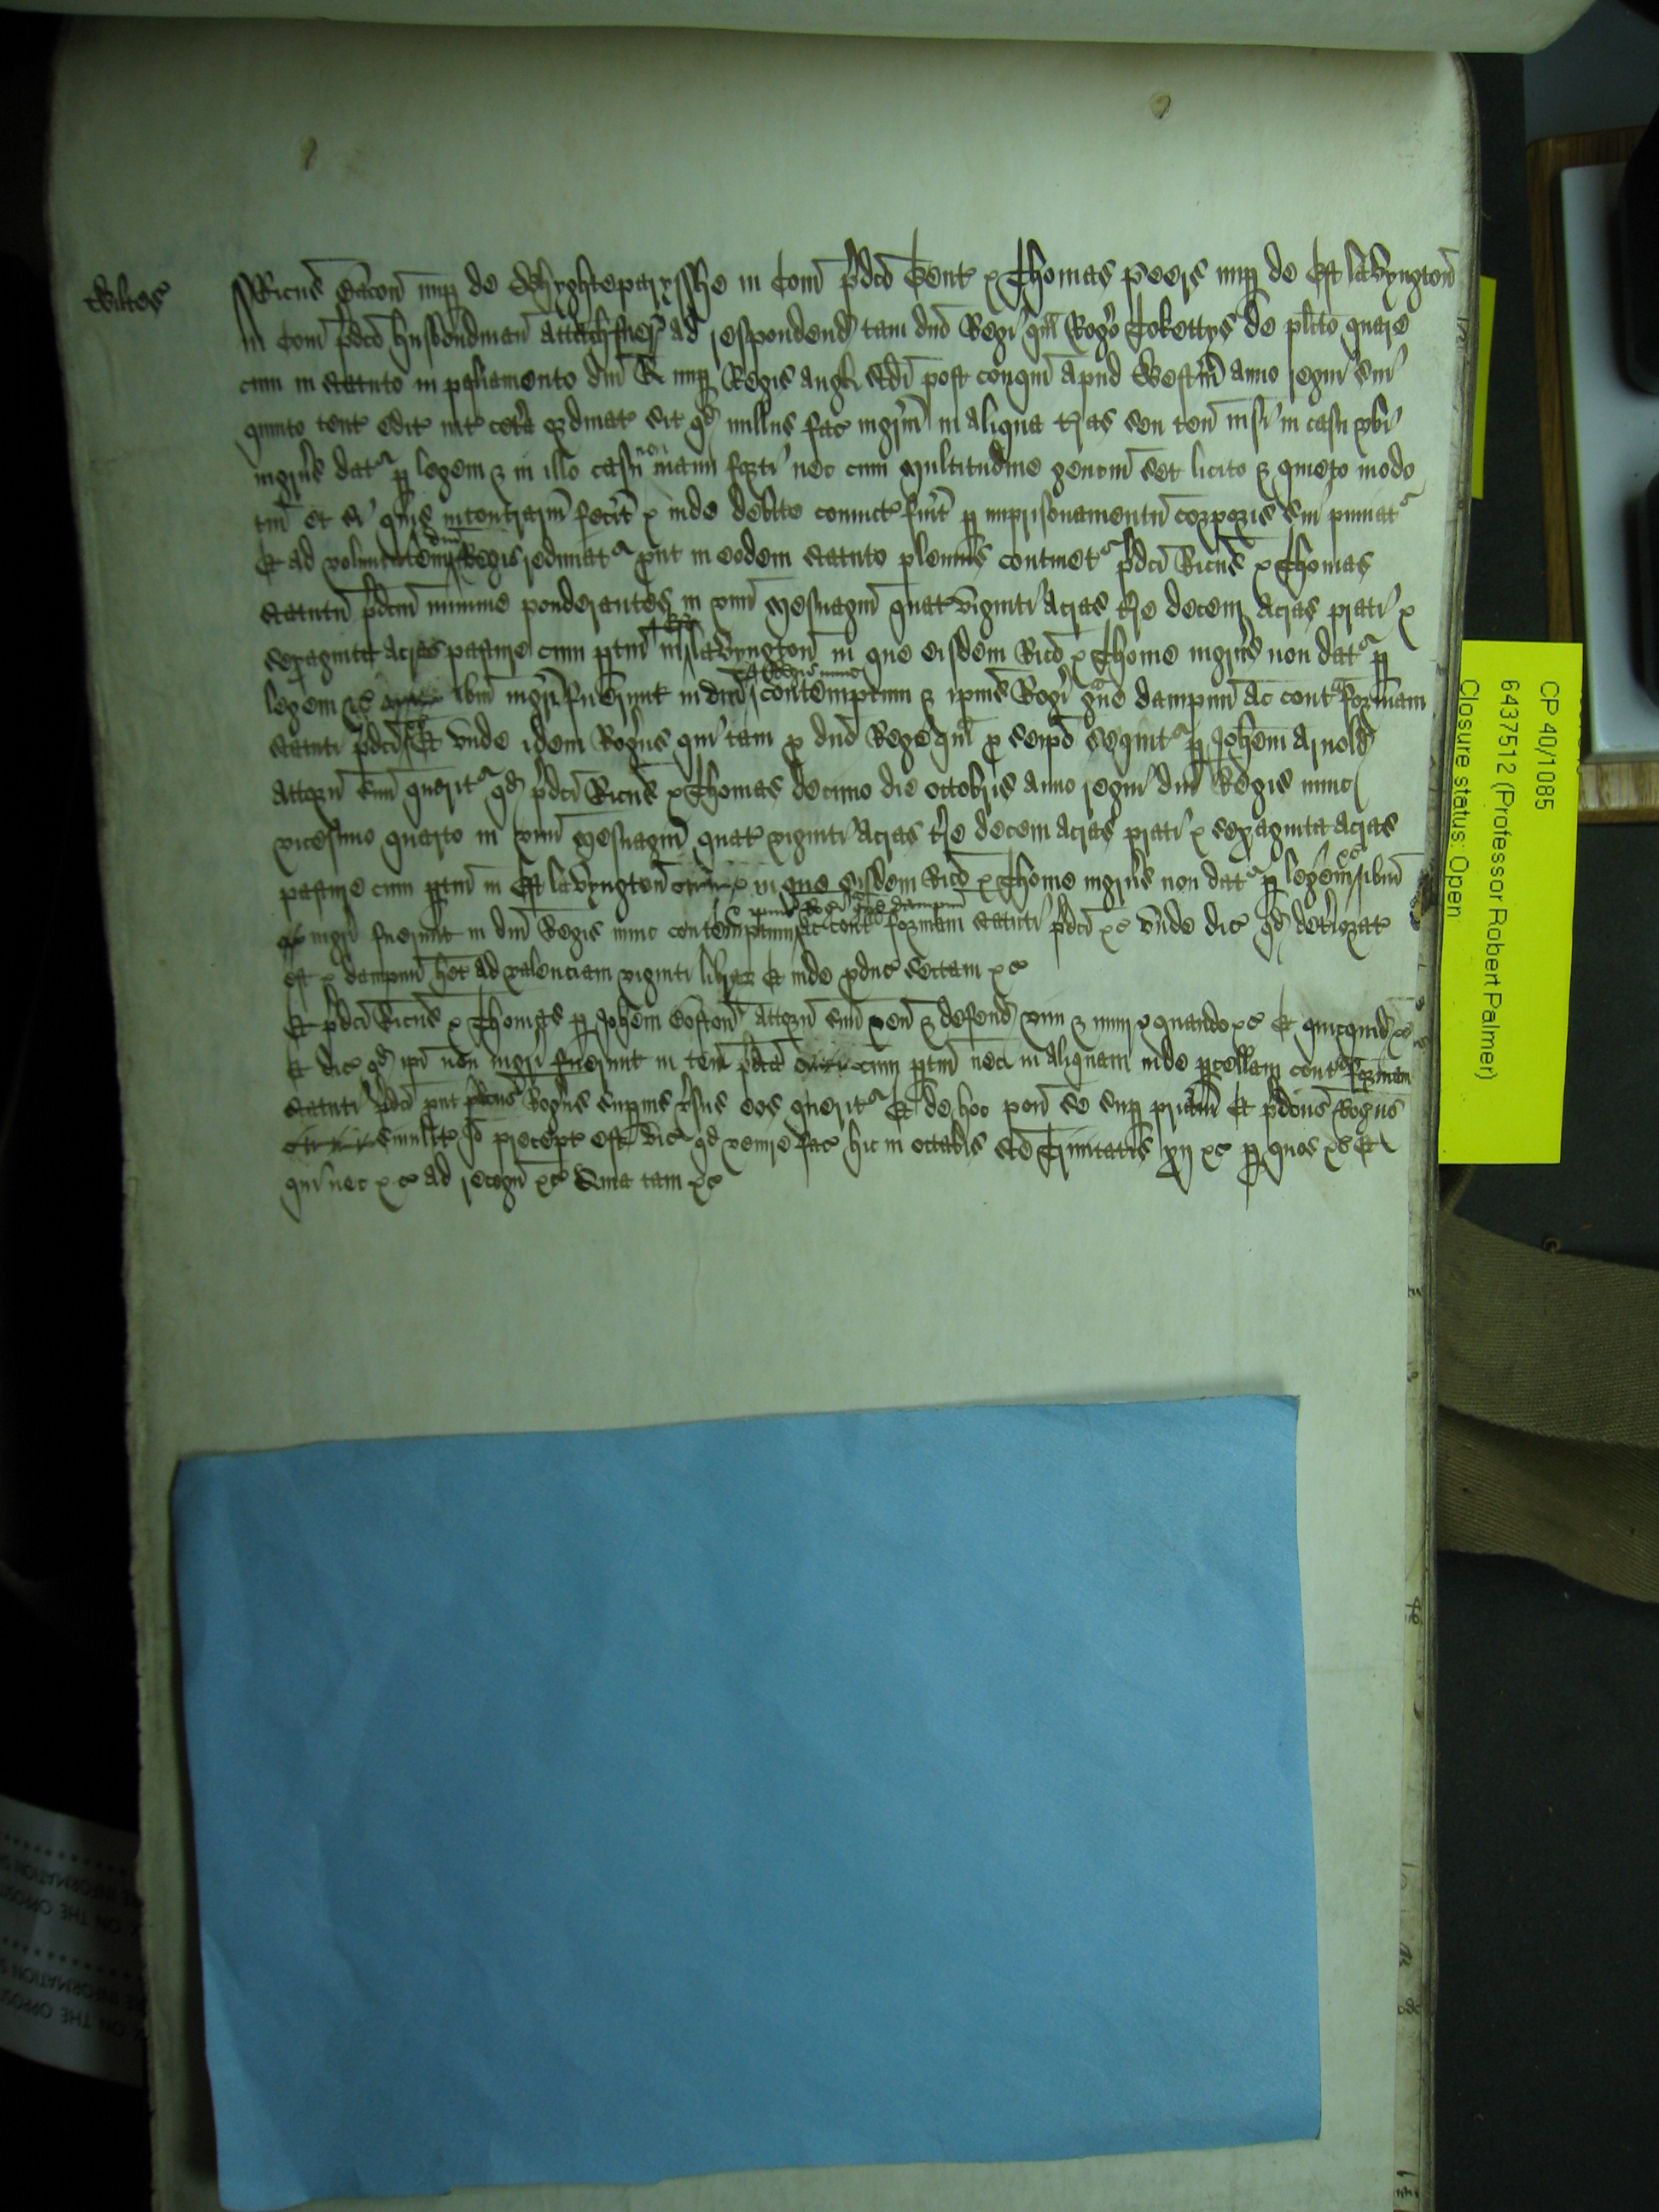 Wiltes
Ricus Bacon nup de Whyghteparysshe in Com pdco Gent & Thomas Peers nup de Est Lavyngton
in Com pdco husbondman attach fuer ad respondend tam dno Regi qm Rogo Tokettys de plito quare
cum in statuto in parliamento dni R nup Regis Angl scdi post conqm apud Westm anno regni sui
quinto tent edit int cetera ordinat sit qd nullus fac ingrm in aliqua tras seu ten nisi in casu ubi
ingrus datr p legem & in illo casu non manu forti nec cum multitudine gencium set licito & quieto modo
tm et si quis incontrarm fecit & inde debite convict fuit p imprisonamentu corporis sui puniatr
Et ad voluntatem dni Regis redimatr put in eodem statuto plenius continetr pdci Ricus & Thomas
statutu pdcm minime ponderantes in unu mesuagiu quat viginti acras tre decem acras prati &
sexaginta acras pasture cum ptin in Est Lavyngton in que eisdem Rico & Thome ingrus non datr p
legem &c ibm ingri fuerunt in dni Regis nunc contemptum & ipius Rogi gve dampnu ac contra formam
statuti pdci &c Et unde idem Rogus qui tam p dno Rege qm p seipo sequitr p Johem Arnold
attorn suu queritr qd pdci Ricus & Thomas decimo die Octobris anno regni dni Regis nunc
vicesimo quarto in unu mesuagiu quat viginti acras tre decem acras prati & sexaginta acras
pasture cum ptin in Est Lavyngton in que eisdem Rico & Thome ingrus non datr p legem &c ibm
ingri fuerunt in dni Regis nunc contemptum & ipius Rogi gve dampnu ac contra formam statuti pdci &c unde dic qd deteriorat
est & dampnu het ad valenciam viginti librar Et inde pduc sectam &c
Et pdci Ricus & Thomas p Johem attorn suu ven & defend vim & iniur quando &c Et quicquid &c
Et dic qd ipi non ingri fuerunt in ten pdca cum ptin nec in aliquam inde pcellam contra formam
statuti pdci put pdcus Rogus supius vsus eos queritr Et de hoc pon se sup priam Et pdcus Rogus
similit Io precept est vic qd venire fac hic in octabis sce Trinitatis xij &c p quos &c Et
qui nec &c ad recogn &c Quia tam &c
CP 40/1085
6437512 (Professor Robert Palmer)
Closure status: Open